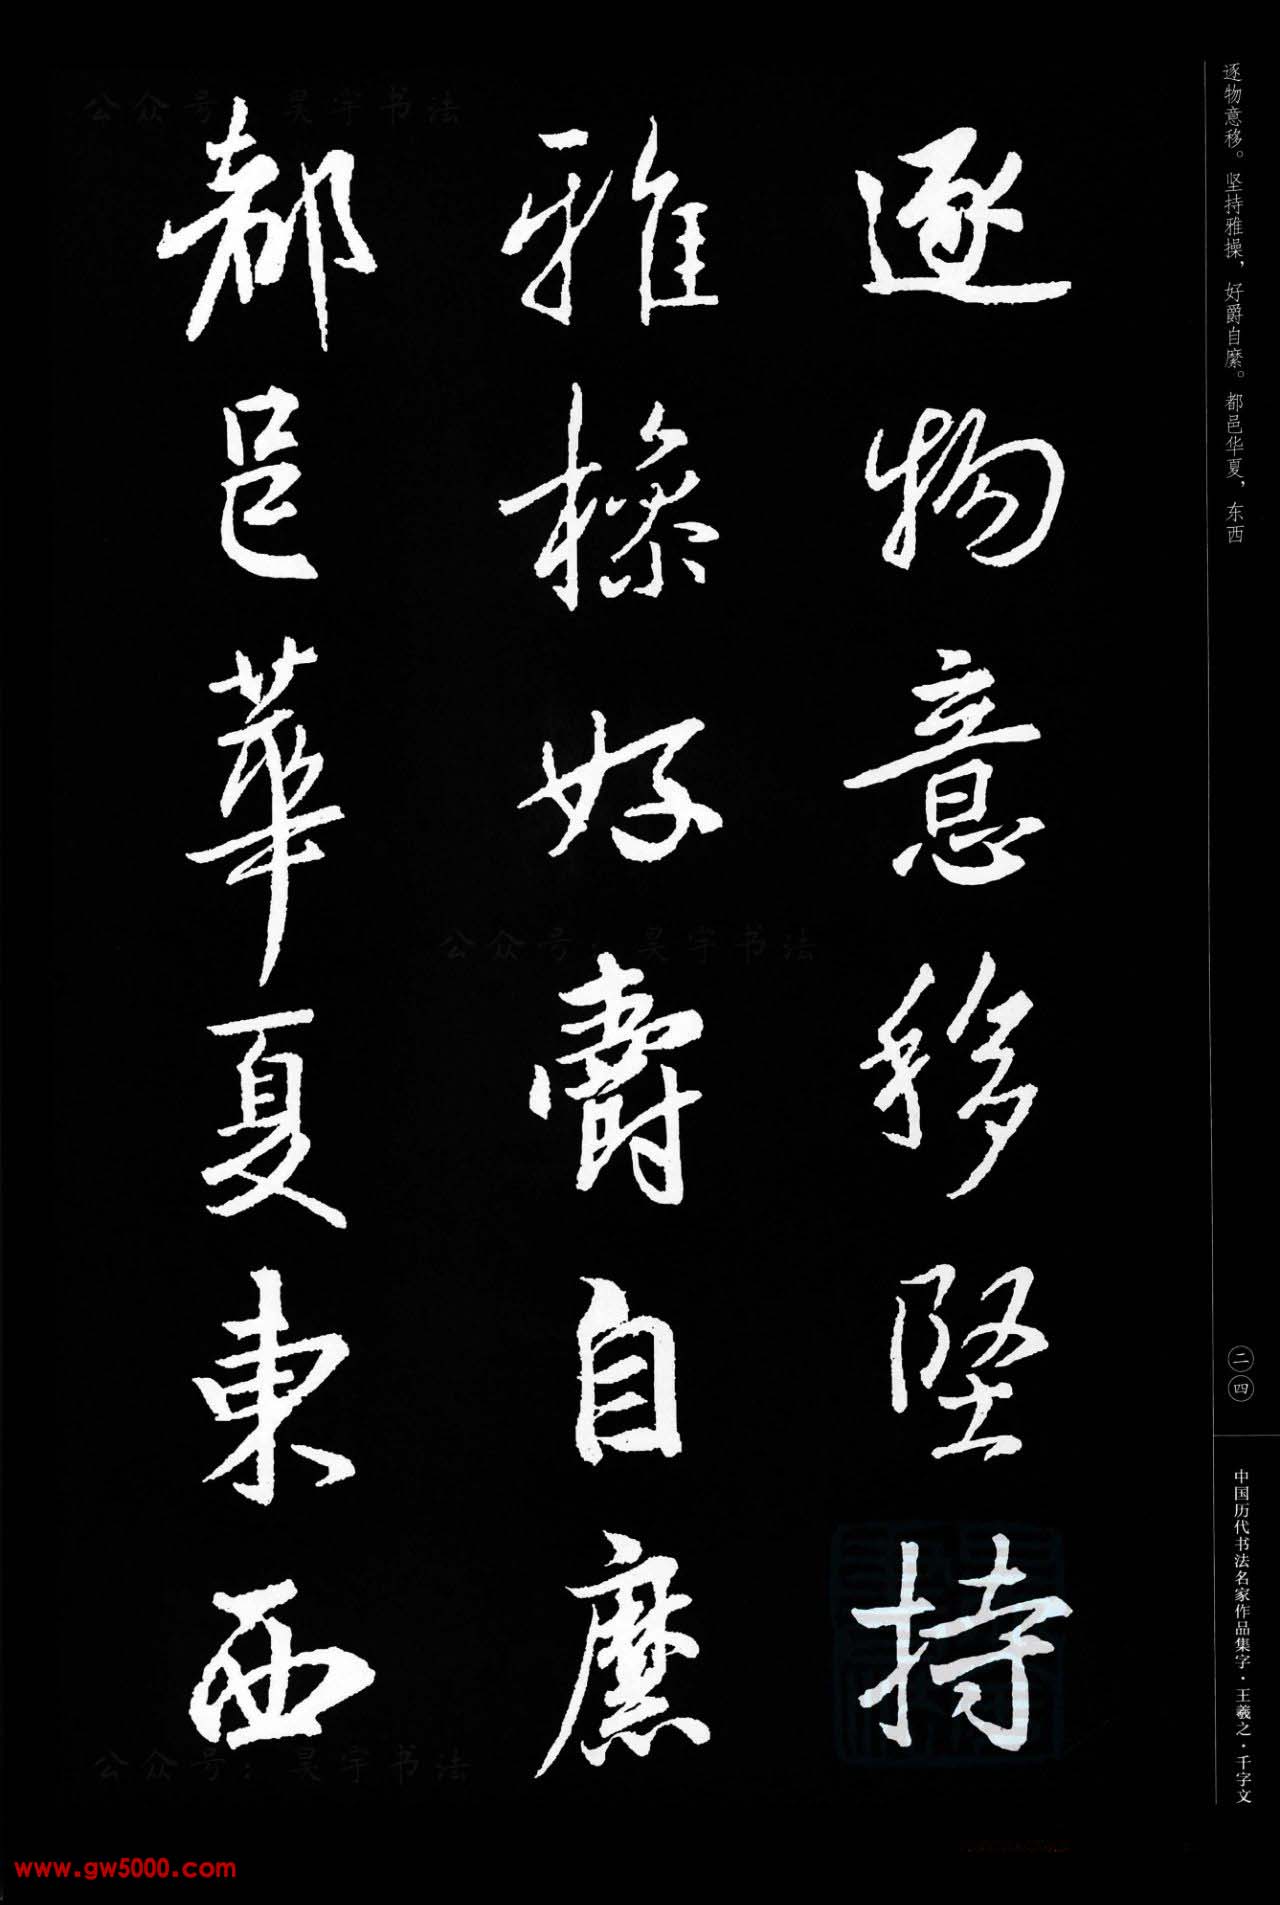 逐物意移坚持
雅操好爵自縻
都邑華夏東西
逐物意移。坚持雅操，好爵自縻。都邑华夏，东西
二四
中国历代书法名家作品集字·王羲之·千字文
公众号：昊宇书法
公众号：昊宇书法
公众号：昊宇书法
www.gw5000.com